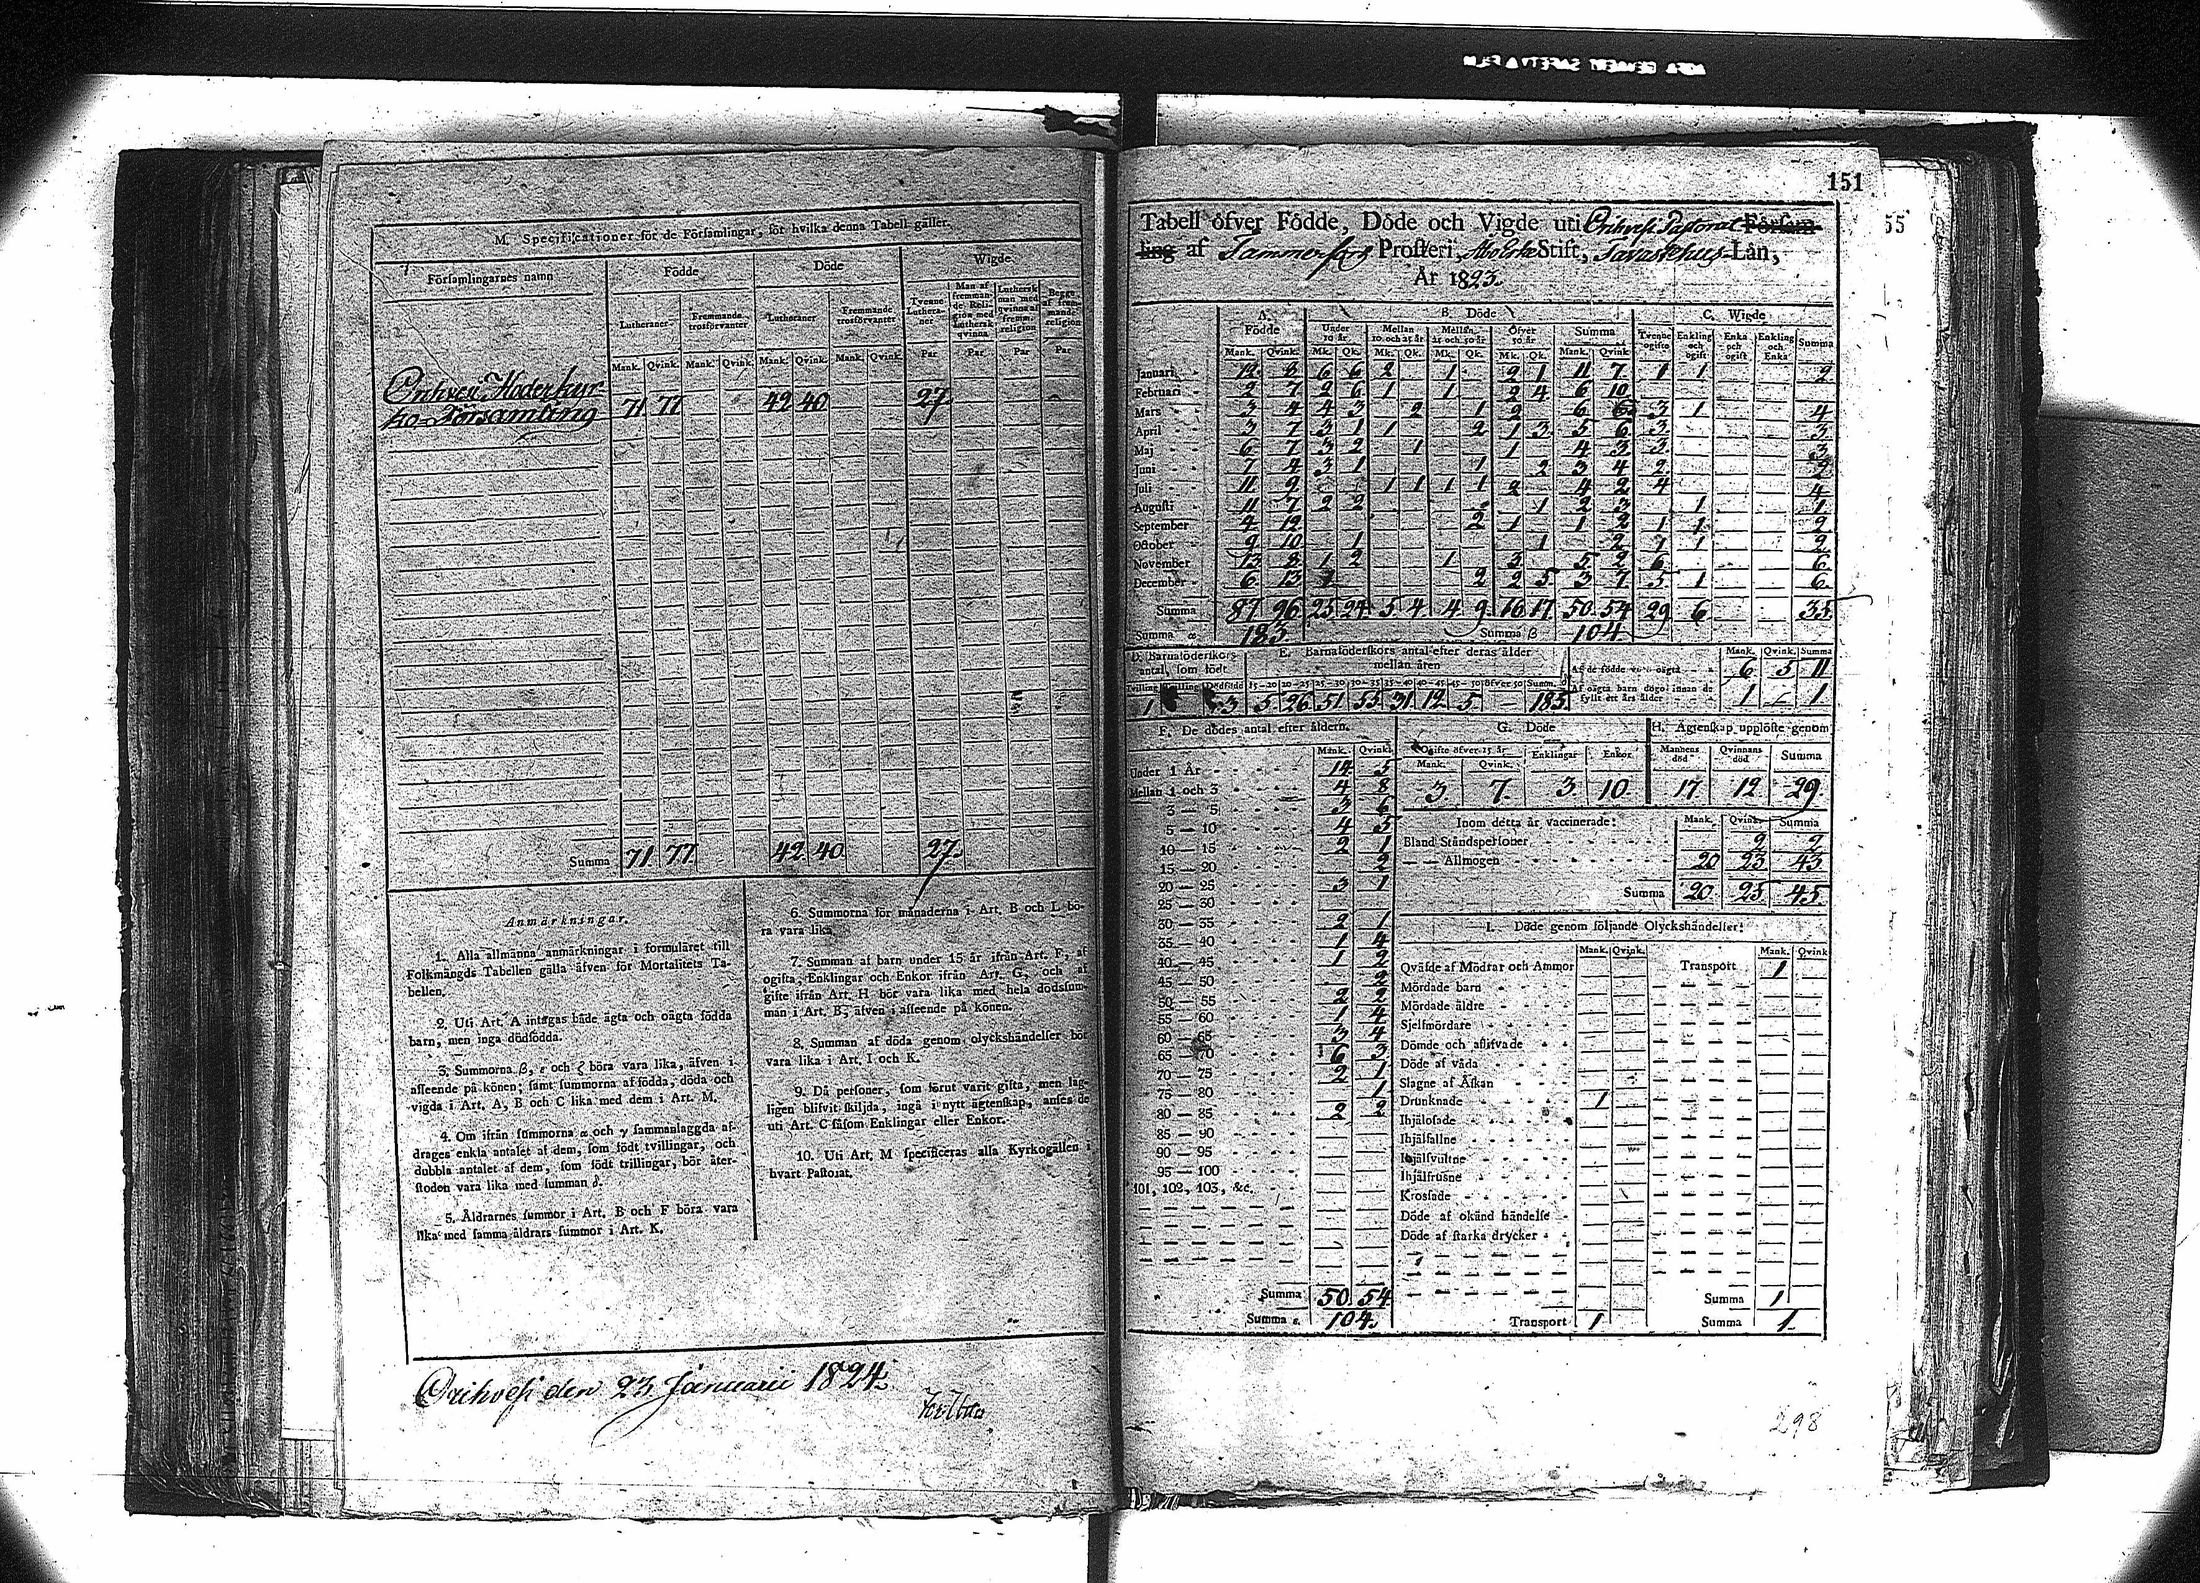 151
55
M. Specificationer för de Församlingar, för hvilka denna Tabell gäller.
Församlingarnes namn
Födde
Döde
Wigde
Lutheraner
Fremmande trosförvanter
Lutheraner
Fremmande trosförvanter
Tvenne Lutheraner
Man af fremmande Religion med Luthersk qvinna
Luthersk man med qvinna af fremm. religion
Begge af fremmande religion
Mank. Qvink. Mank. Qvink. Mank. Qvink. Mank. Qvink. Par Par Par Par
Orihvesi Moderkyr
ko-Församling 71 77 42 40 27
Summa 71 77 42 40 27
Anmärkningar.
1. Alla allmänna anmärkningar i formuläret till
Folkmängds Tabellen gälla äfven för Mortalitets Ta-
bellen.
2. Uti Art. A intagas både ägta och oägta födda
barn, men inga dödfödda.
3. Summorna β, ε och ζ böra vara lika, äfven i
afseende på könen; samt summorna af födda, döda och
vigda i Art. A, B och C lika med dem i Art. M.
4. Om ifrån summorna α och γ sammanlaggda af-
drages enkla antalet af dem, som födt tvillingar, och
dubbla antalet af dem, som födt trillingar, bör åter-
stoden vara lika med summan δ.
5. Åldrarnes summor i Art. B och F böra vara
lika med samma åldrars summor i Art. K.
6. Summorna för månaderna i Art. B och L bö-
ra vara lika.
7. Summan af barn under 15 år ifrån Art. F, af
ogifta, Enklingar och Enkor ifrån Art. G, och af
gifte ifrån Art. H bör vara lika med hela dödssum-
man i Art. B, äfven i afseende på könen.
8. Summan af döda genom olyckshändelser bör
vara lika i Art. I och K.
9. Då personer, som förut varit gifta, men lag-
ligen blifvit skiljda, ingå i nytt ägtenskap, anses de
uti Art. C såsom Enklingar eller Enkor.
10. Uti Art. M specificeras alla Kyrkogällen i
hvart Pastorat.
Orihvesi den 23 Januarii 1824.
Tabell öfver Födde, Döde och Vigde uti Orihvesi Pastorat Försam-
ling af Tammerfors Prosteri, Åbo Erke Stift, Tavastehus Län,
År 1823.
A. Födde
B. Döde
C. Wigde
Under 10 år
Mellan 10 och 25 år
Mellan 25 och 50 år
Öfver 50 år
Summa
Tvenne ogifte
Enkling och ogift
Enka och ogift
Enkling och Enka
Summa
Mank. Qvink. Mk. Qk. Mk. Qk. Mk. Qk. Mk. Qk. Mank. Qvink.
Januari 12 8 6 6 2 1 2 1 11 7 1 1 2
Februari 2 7 2 6 1 1 2 4 6 10
Mars 3 4 4 3 2 1 2 6 6 3 1 4
April 3 7 3 1 1 2 1 3 5 6 3 3
Maj 6 7 3 2 1 1 4 3 3 3
Juni 7 4 3 1 1 2 3 4 2 2
Juli 11 9 1 1 1 1 2 4 2 4 4
Augusti 11 7 2 2 1 2 3 1 1
September 4 12 2 1 1 2 1 1 2
October 9 10 1 1 2 1 1 2
November 13 8 1 2 1 3 5 2 6 6
December 6 13 1 2 2 5 3 7 5 1 6
Summa 87 96 25 24 5 4 4 9 16 17 50 54 29 6 35
Summa α 183 Summa β 104
D. Barnaföderskors antal, som födt
E. Barnaföderskors antal efter deras ålder
mellan åren
Mank. Qvink. Summa
Af de födde voro oägta 6 5 11
Af oägta barn dogo innan de
fyllt ett års ålder 1 1
15—20 20—25 25—30 30—35 35—40 40—45 45—50 öfver 50 Summ. δ
1 3 5 26 51 55 31 12 5 185
F. De dödes antal efter åldern.
Mank. Qvink.
Under 1 År 14 5
Mellan 1 och 3 4 8
3 — 5 3 6
5 — 10 4 5
10 — 15 2 1
15 — 20 2
20 — 25 3 1
25 — 30
30 — 35 2 1
35 — 40 1 4
40 — 45 1 2
45 — 50 2
50 — 55 2 2
55 — 60 1 4
60 — 65 3 4
65 — 70 6 3
70 — 75 2 1
75 — 80 1
80 — 85 2 2
85 — 90
90 — 95
95 — 100
101, 102, 103, &c.
Summa 50 54
Summa ε. 104.
G. Döde
Ogifte öfver 15 år
Enklingar
Enkor
Mank. Qvink.
3 7 3 10
H. Ägtenskap upplöste genom
Mannens död
Qvinnans död
Summa
17 12 29
Inom detta år vaccinerade:
Mank. Qvink. Summa
Bland Ståndspersoner 2 2
— — Allmogen 20 23 43
Summa 20 25 45
I. Döde genom följande Olyckshändelser:
Mank. Qvink. Mank. Qvink.
Qväfde af Mödrar och Ammor
Transport 1
Mördade barn
Mördade äldre
Sjelfmördare
Dömde och aflifvade
Döde af våda
Slagne af Åskan
Drunknade 1
Ihjälosade
Ihjälfallne
Ihjälsvultne
Ihjälfrusne
Krossade
Döde af okänd händelse
Döde af starka drycker
Summa 1
Transport 1
Summa 1
298
AGFA GEVAERT SAFETY FILM